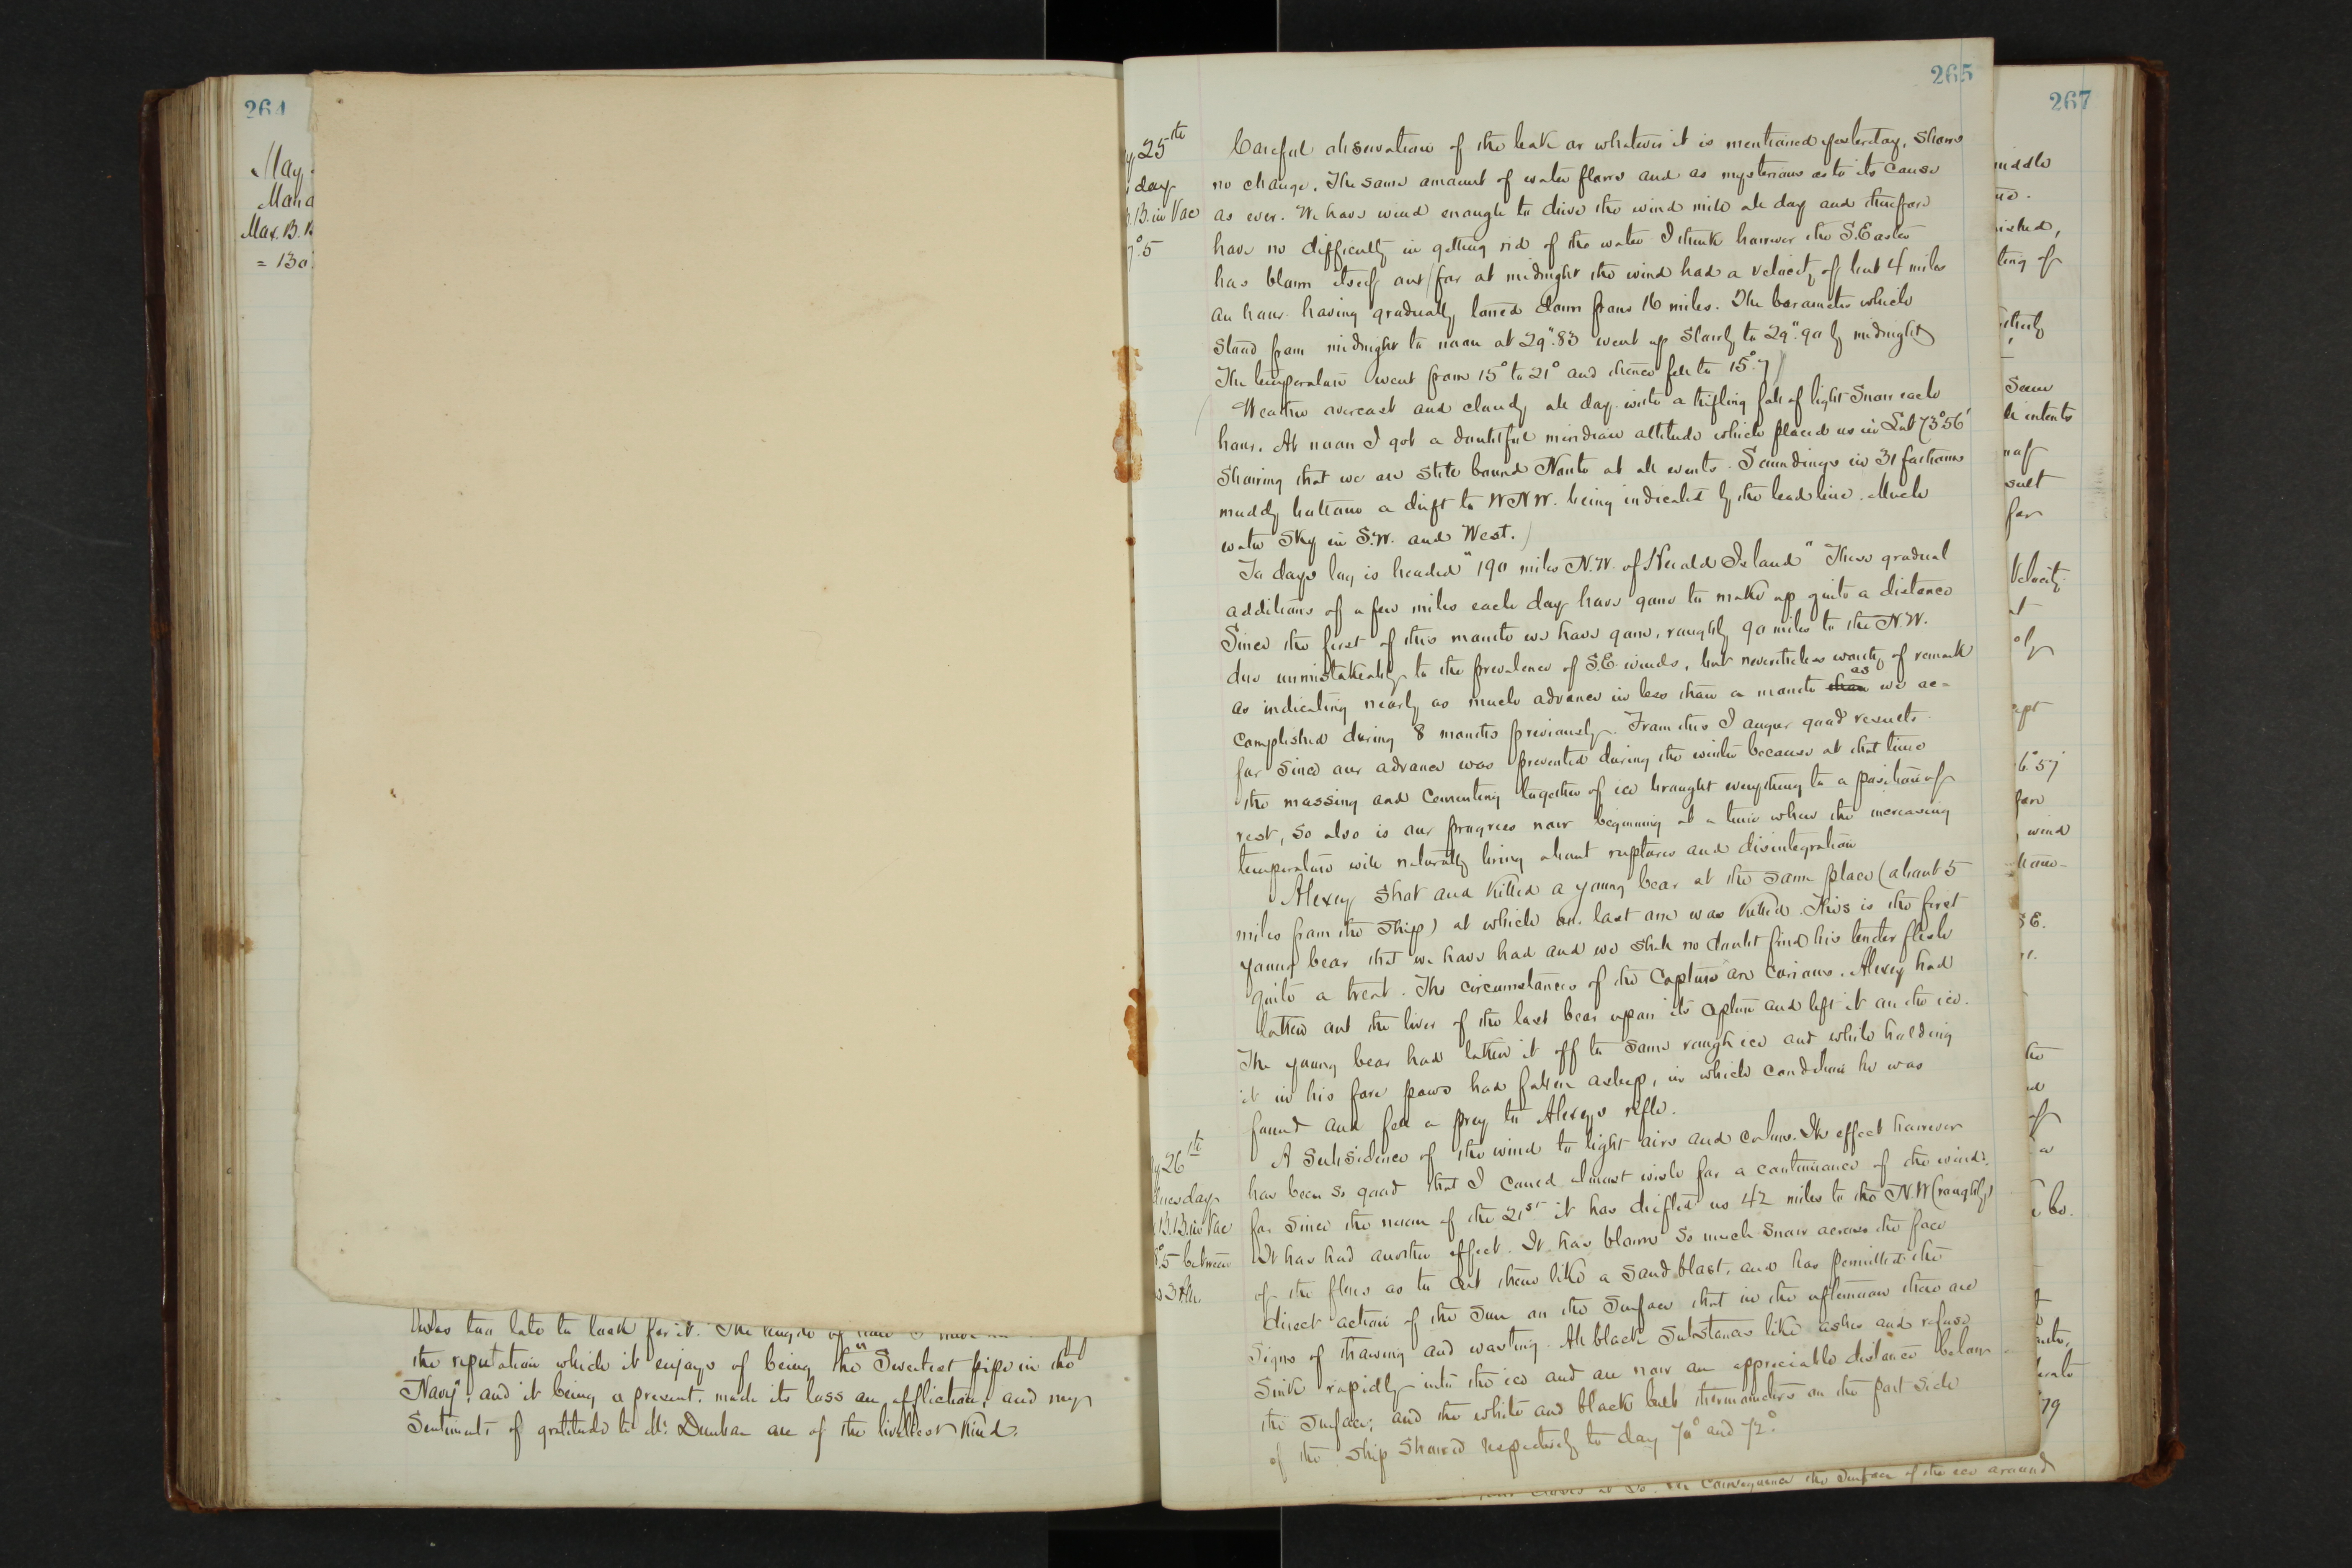 264
May
Max. B. B
= 130
was too late to look for it. The length of time I have
the reputation which it enjoys of being the "Sweetest pipe in the
Navy", and it being a present, made its loss an affliction, and my
Sentiments of gratitude to Mr. Dunbar are of the liveliest kind.
265
y 25th
day
B. in Vac
7°.5
Careful observation of the leak or whatever it is mentioned yesterday, shows
no change. The same amount of water flows and as mysterious as to its cause
as ever. We have wind enough to drive the wind mill all day and therefore
have no difficulty in getting rid of the water I think however the S.Easter
has blown itself out for at midnight the wind had a velocity of but 4 miles
an hour having gradually lowered down from 16 miles. The barometer which
stood from midnight to noon at 29".83 went up slowly to 29".90 by midnight
The temperature went from 15° to 21° and thence fell to 15°.7
Weather overcast and cloudy all day with a trifling fall of light snow each
hour. At noon I got a doubtful meridian altitude which placed us in Lat 73°56'
showing that we are still bound North at all events. Soundings in 31 fathoms
muddy bottom a drift to WNW. being indicated by the lead line. Much
water sky in S.W. and West.
To days log is headed "190 miles N.W. of Herald Island" These gradual
additions of a few miles each day have gone to make up quite a distance
Since the first of this month we have gone, roughly 90 miles to the N.W.
due unmistakeably to the prevalence of S.E. winds, but nevertheless worthy of remark
as indicating nearly as much advance in less than a month than as we ac=
complished during 8 months previously. From this I augur good results
for since our advance was prevented during the winter because at that time
the massing and cementing together of ice brought everything to a position of
rest, so also is our progress now beginning at a time when the increasing
temperature will naturally bring about ruptures and disintegration
Alexey shot and killed a young bear at the same place (about 5
miles from the ship) at which our last one was killed. This is the first
young bear that we have had and we shall no doubt find his tender flesh
quite a treat. The circumstances of the capture are curious. Alexey had
taken out the liver of the last bear upon its capture and left it on the ice.
The young bear had taken it off to some rough ice and while holding
it in his fore paws had fallen asleep, in which condition he was
found and fell a prey to Alexeys rifle.
y 26th
nesday
B.B. in Vac
°.5 between
3 P.M.
A Subsidence of the wind to light airs and calms. Its effect however
has been so good that I could almost wish for a continuance of the winds
for since the noon of the 21st it has drifted us 42 miles to the N.W (roughly)
It has had another effect. It has blown so much snow across the face
of the floes as to cut them like a sand blast, and has permitted the
direct action of the sun on the surface that in the afternoon there are
signs of thawing and wasting. All black substances like ashes and refuse
sink rapidly into the ice and are now an appreciable distance below
the surface; and the white and black bulb thermometers on the port side
of the ship showed respectively to day 70° and 72°.
consequence the surface of the ice around
267
middle
ting of
Some
intents
sult
for
Velocity
at
of
ept
6°.57
fore
wind
S E.
be.
79